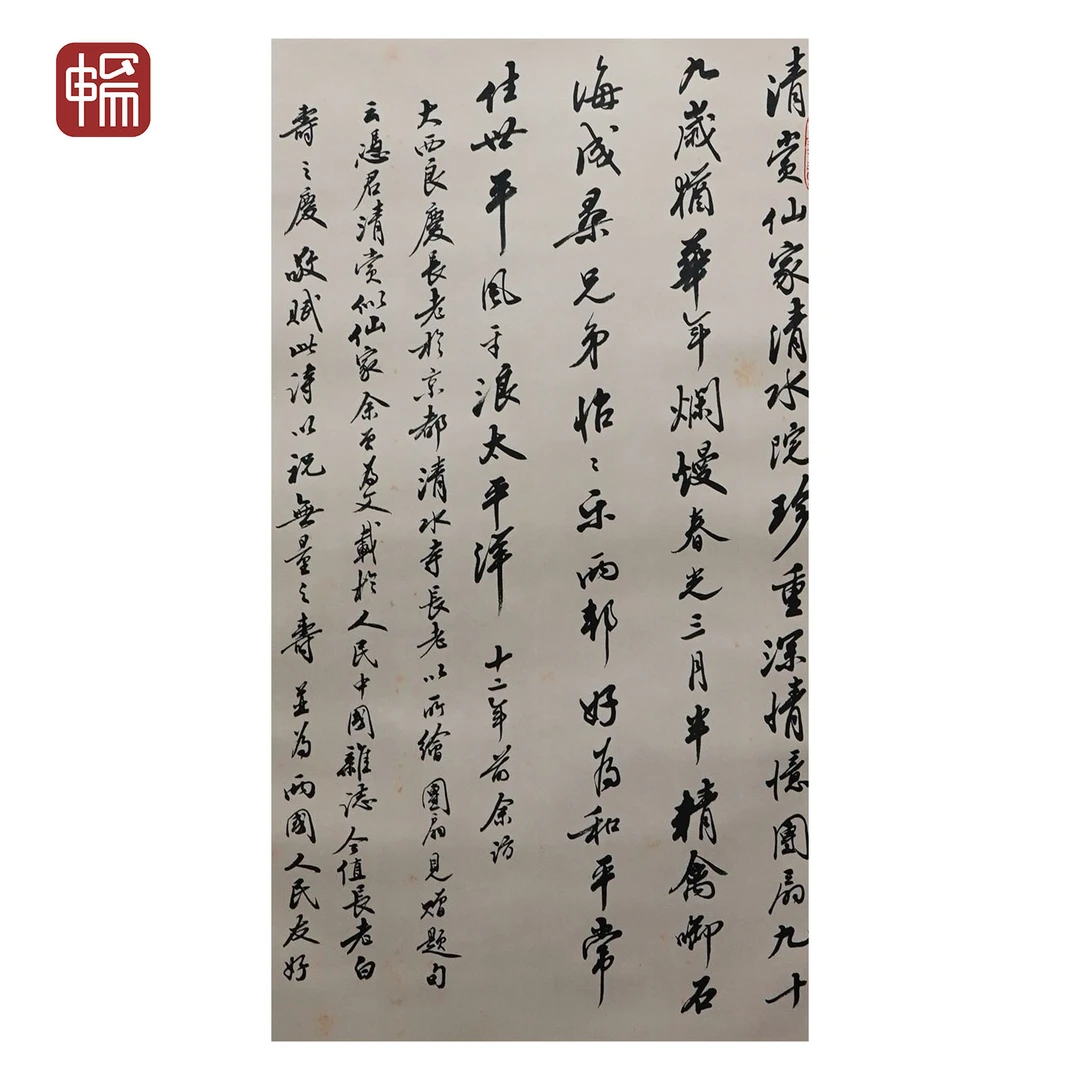 清賞仙家清水院珍重深情憶團扇九十
九歲猶華年爛慢春光三月半精禽啣石
海成桑兄弟怡〻乐兩邦好為和平常
住世平風平浪太平洋 十二年前余訪
大西良慶長老於京都清水寺長老以所繪團扇見贈題句
云憑君清賞似仙家余曾為文載於人民中國雜誌今值長老白
壽之慶敬賦此詩以祝無量之壽並為兩國人民友好
暢